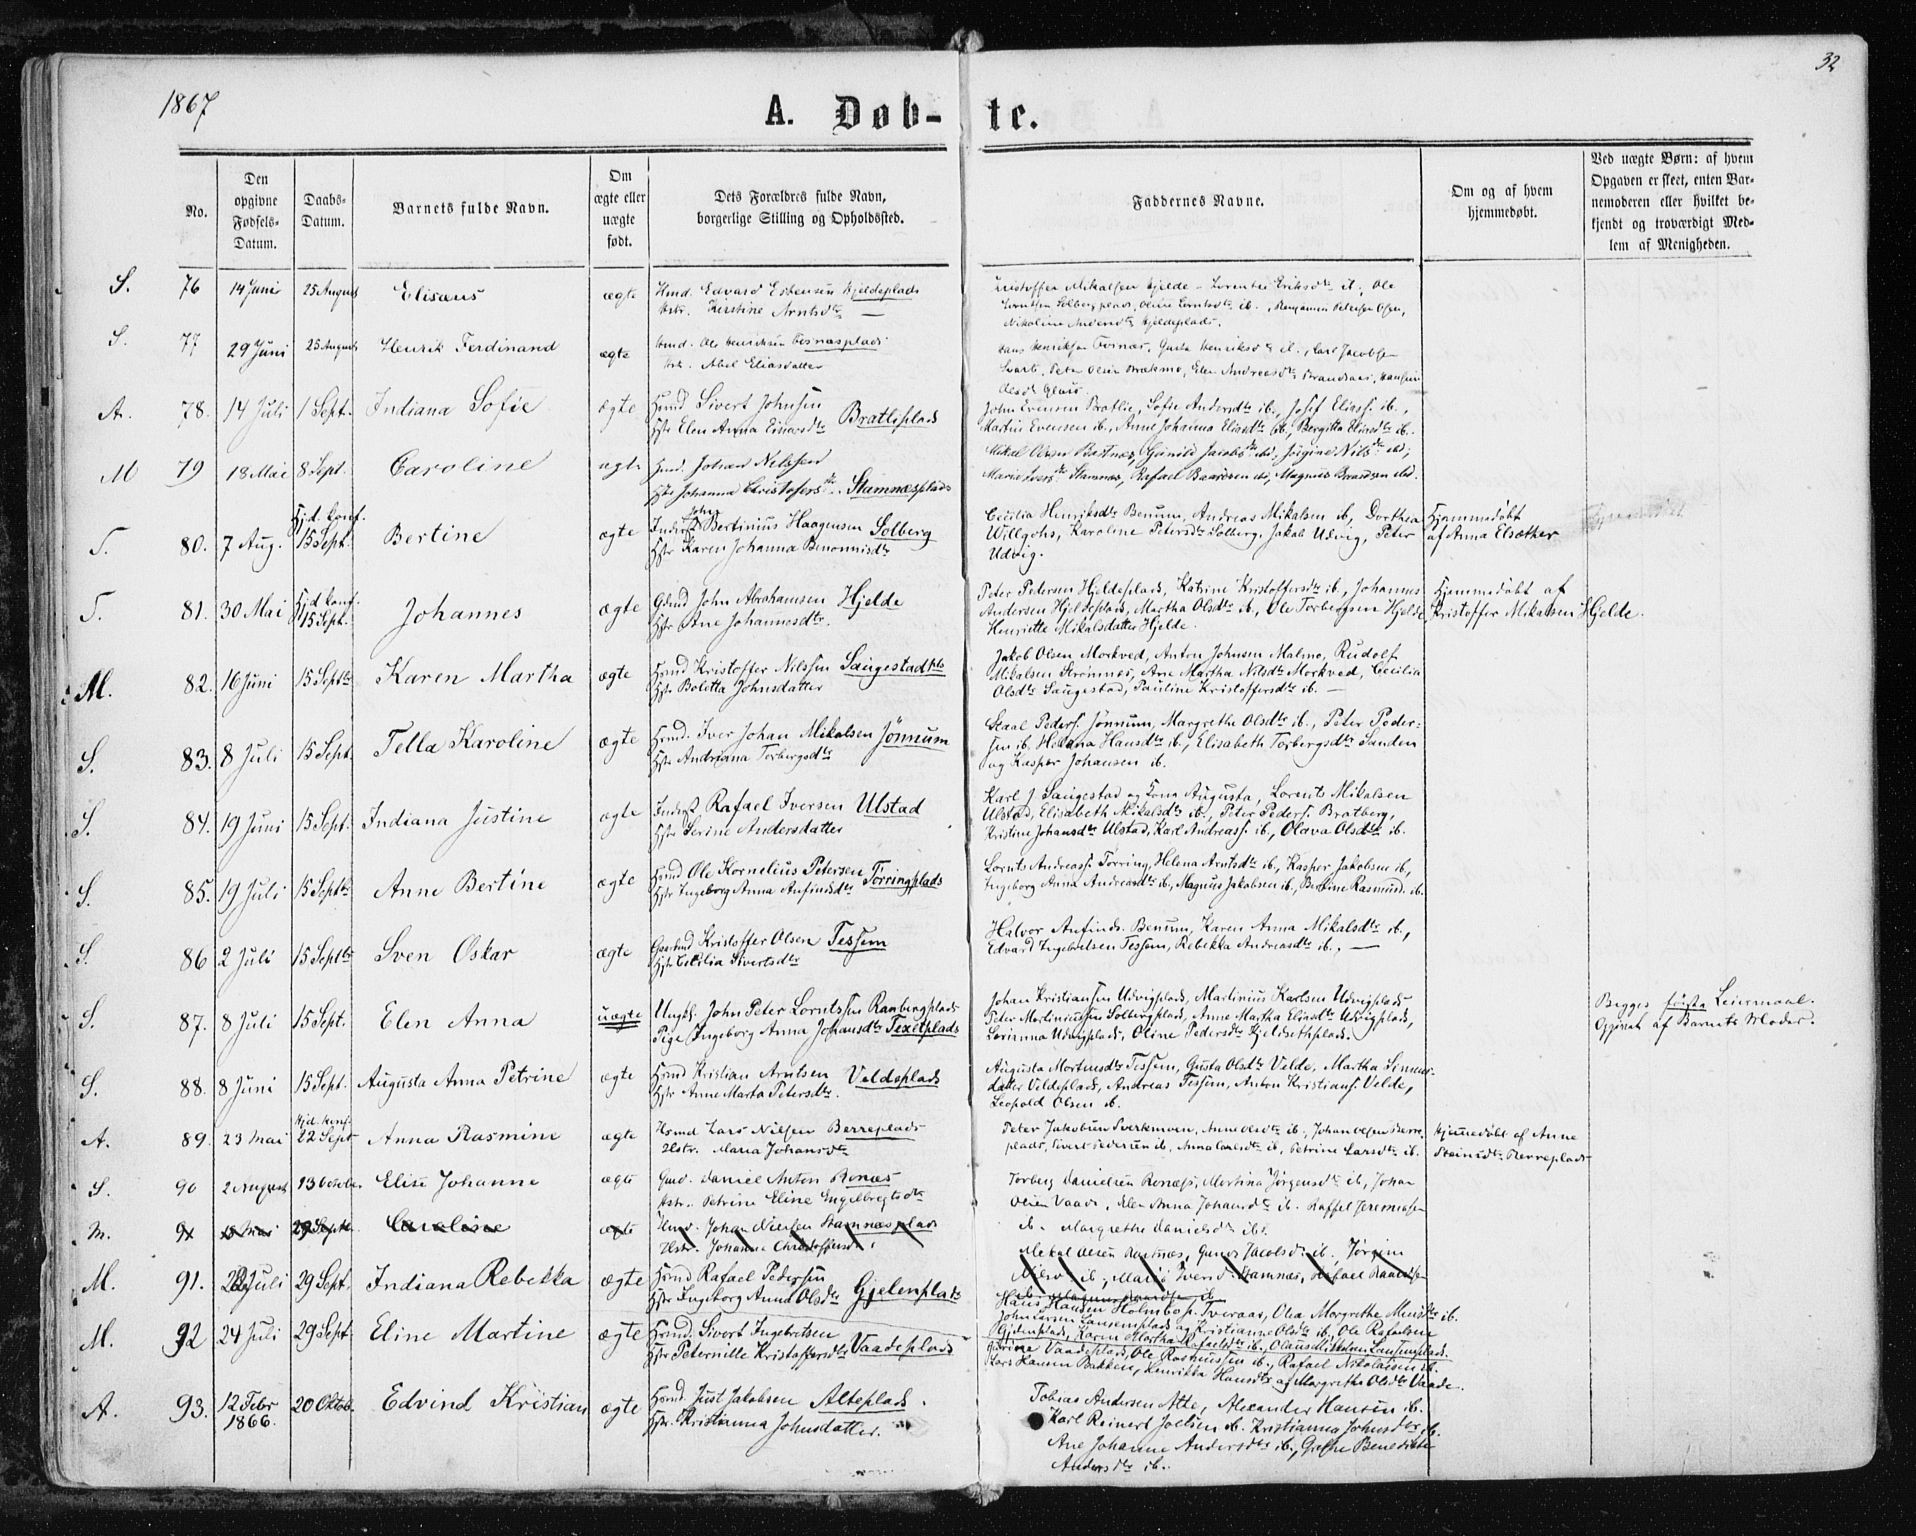 1867
32
A. Døb-te.
No.
Den opgivne Fødsels-Datum.
Daabs-Datum.
Barnets fulde Navn.
Om ægte eller uægte født.
Dets Forældres fulde Navn, borgerlige Stilling og Opholdssted.
Faddernes Navne.
Om og af hvem hjemmedøbt.
Ved uægte Børn: af hvem Opgaven er skeet, enten Barnemoderen eller hvilket bekjendt og troværdigt Medlem af Menigheden.
S. 76 14 Juni 25 August Elisæus ægte Hmd. Edvard Estensen Hjeldeplads
Hstr. Kirstine Arntsdtr —
Kristoffer Mikalsen Hjelde - Lorentse Eriksdtr ib, Ole
Lorntsen Solbergplads, Oline Lorntsdtr ib., Benjamin Petersen Olsen,
Nikoline Andersdtr Hjeldeplads.
S. 77 29 Juni 25 August Henrik Ferdinand ægte Hmd. Ole Henriksen Tvinæsplads
Hstr. Abel Eliasdatter
Hans Henriksen Tvinæs, Gusta Henriksdtr ib., Karl Jacobsen
Svarte, Peter Olsen Brækmo, Elen Andreasdtr Brandsaas, Hansine
Olsdtr
A. 78. 14 Juli 1 Sept. Indiana Sofie ægte Hmd Sivert Johnsen
Hstr Elen Anna Einarsdtr Bratliplads
John Evensen Bratlie, Sofie Andersdtr ib., Josef Eliass. ib.,
Martin Evensen ib., Anne Johanna Eliasdtr ib., Bergitta Eliasdtr ib.
M 79 18 Mai 8 Sept. Caroline ægte Hmd. Johan Nilssen
Hstr Johanna Christofersdtr. Stamnæsplads
Mikal Olsen Bastnæs, Gunild Jacobsdtr ibd, Jörgine Nilsdtr ibd,
Marie Iversdtr Stamnæs, Rafael Baardsen ibd, Magnus Baardsen ibd.
S. 80. 7 Aug. Hjd. Conf. 15 Sept. Bertine ægte Inderst John Bertinius Haagensen Solberg
Hstr Karen Johanna Benonnisdtr
Cecilia Henriksdtr Benum, Andreas Mikalsen ib, Dorthea
Willgohs, Karoline Petersdtr Solberg, Jakob Udvig, Peter
Udvig.
Hjemmedöbt
af Anna Elsæther
S. 81. 30 Mai Hjd. konf. 15 Sept. Johannes ægte Gbmd John Abrahamsen Hjelde
Hstr Ane Johannesdtr.
Peter Petersen Hjeldeplads, Katrine Kristoffersdtr ib., Johannes
Andersen Hjeldeplads, Martha Olsdtr ib., Ole Torbergsen Hjelde
Henriette Mikalsdatter Hjelde.
Hjemmedöbt af
Kristoffer Mikalsen Hjelde.
M. 82. 16 Juni 15 Septbr Karen Martha ægte Hmd Kristoffer Nilssen Saugestadpls
Hstr Boletta Johnsdatter
Jakob Olsen Morkved, Anton Johnsen Malmo, Rudolf
Mikalsen Strömnes, Ane Martha Nilsdtr Morkved, Cecilia
Olsdtr Saugestad, Pauline Kristoffersdtr ib. —
S. 83. 8 Juli 15 Sept. Tella Karoline ægte Hmd. Iver Johan Mikalsen Jönnum
Hstr Andriana Torbergsdtr
Skaal Peders. Jönnum, Margrethe Olsdtr ib., Peter Peder-
sen ib. Helena Hansdtr ib., Elisabeth Torbergsdtr Sanden
og Kasper Johansen ib.
S. 84. 19 Juni 15 Sept. Indiana Justine ægte Inderst Rafael Iversen Ulstad
Hstr Serine Andersdatter
Karl J Saugestad og Kona Augusta, Lorents Mikalsen
Ulstad, Elisabeth Mikalsdtr ib., Peter Peders. Bratberg,
Kristine Johansdtr Ulstad, Karl Andreass. ib., Olava Olsdtr ib.
S. 85. 19 Juli 15 Septbr Anne Bertine ægte Hmd Ole Kornelius Petersen Törringplads
Hstr Ingeborg Anna Anfinsdtr
Lornts Andreass. Törring, Helena Arntsdtr ib, Kasper Jakobsen ib,
Ingeborg Anna Andreasdtr ib., Magnus Jakobsen ib, Bertine Rasmusd. ib.
S. 86 2 Juli 15 Septbr Sven Oskar ægte Gaardmd Kristoffer Olsen Tessem
Hstr Cecilia Sivertsdtr
Halvor Anfinds. Benum, Karen Anna Mikalsdtr ib.,
Edvard Ingebretsen Tessem, Rebekka Andreasdtr ib. —
S. 87. 8 Juli 15 Sept. Elen Anna uægte Ungk. John Peter Lorntssen Ranbergplads
Pige Ingeborg Anna Johansdtr Texetplads
Johan Kristiansen Udvigplads, Martinius Karlsen Udvigplads
Peter Martiniussen Solbergplads, Anne Martha Eliasdtr Udvigplads,
Lorianna Udvigplads, Oline Pedersdtr Hjeldsethplads.
Begges förste Leiermaal.
Opgivet af Barnets Moder.
S. 88. 8 Juni 15 Sept. Augusta Anna Petrine ægte Hmd Kristian Arntsen Veldeplads
Hstr Anne Marta Petersdtr.
Augusta Mortensdtr Tessem, Gusta Olsdtr Velde, Martha Simons-
datter Veldeplads, Andreas Tessem, Anton Kristians. Velde,
Leopold Olsen ib.
A. 89. 23 Mai Hjd. konf. 22 Sept Anna Rasmine ægte Hsmd Lars Nilsen Berreplads
Hstr. Maria Johansdtr
Peter Jakobsen Sverkemoen, Anne Olsdtr ib., Johan Olsen Berre-
plads, Sivert Pedersen ib, Anna Larsdtr ib, Petrine Larsdtr ib.
Hjemmedöbt af Anne
Steinsdtr Berreplads
S. 90 2 August 13 October Elise Johanne ægte Gmd. Daniel Anton Ronæs
Hstr. Petrine Eline Engelbregtsdtr
Torberg Danielsen Ronæs, Martina Jörgensdtr ib, Johan
Olsen Vaade, Elen Anna Johansdtr ib. Raffel Jeremiasen
ib. Margrethe Danielsdtr ibd.
M. 91 18 Mai 29 Septbr Caroline ægte Hmd. Johan Nielsen Stamnæsplads
Hstr. Johanna Christoffersdtr
Mekal Olsen Bastnæs, Gunild Jacobsdtr ib, Jörgine
Nilsd. ib, Marie Iversd. Stamnæs, Rafael Baardsen
ib. Magnus Baardsen ib
M. 91. 28 Juli 29 Sept. Indiana Rebekka ægte Hmd Rafael Pedersen
Hstr Ingeborg Anna Olsdtr Gjelenplads
Hans Hansen Holmbo p. Tveraas, Olea Margrethe Mensdtr ib.
John Larsen Lausenplads og Kristianne Olsdtr ib, Ole Rafaelsen
Gjelenplads, Karen Martha Rafaelsdtr ib., Olaus Mikkelsen Lausenplads.
M. 92 24 Juli 29 Sept Eline Martine ægte Hmd. Sivert Ingebritsen
Hstr Peternille Kristoffersdtr Vaadeplads
Vaadeplads, Ole Rasmussen ib., Rafael Nikolaisen ib.
Lars Hansen Bakken, Henrikka Hansdtr og Margrethe Olsdtr Vaade.
A. 93. 12 Febr 1866. 20 Oktob. Edvind Kristian ægte Hmd. Just Jakobsen Alteplads.
Hstr. Kristianna Johnsdatter.
Tobias Andersen Alte, Alexander Hansen ib.
Karl Reinert Joelsen ib. Kristianna Johnsdtr ib.
Ane Johanne Andersdtr ib., Grethe Benedikte
Andersdtr ib.